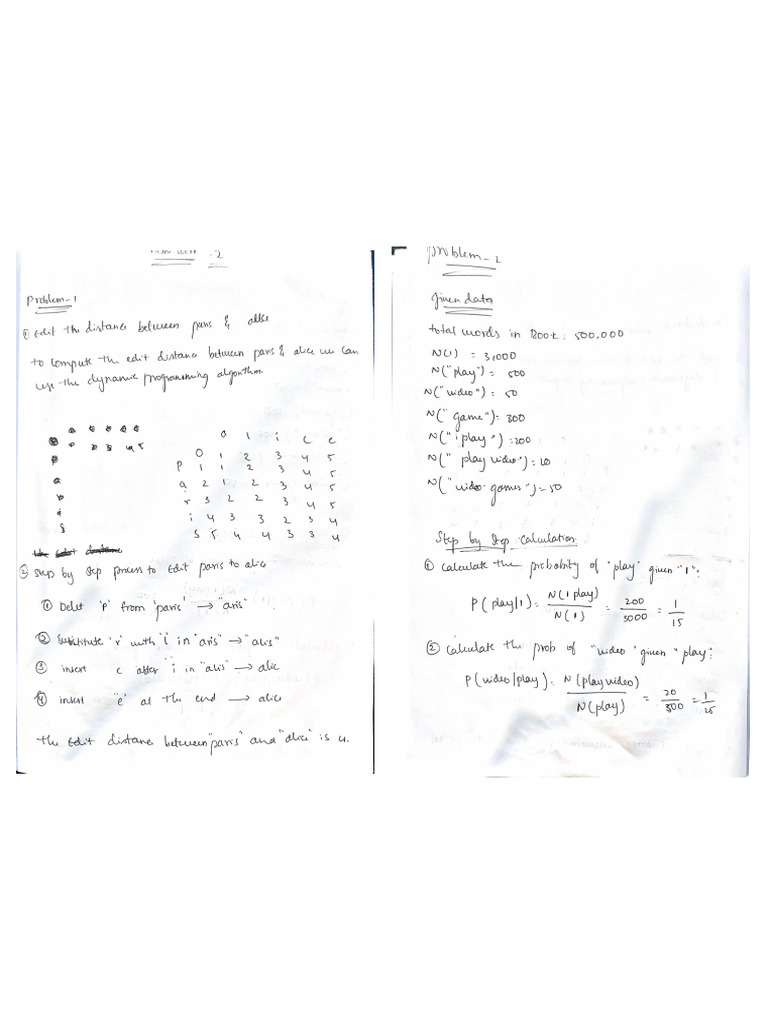 -2
Problem-1
① Edit the distance between paris & alice
to compute the edit distance between paris & alice we can
use the dynamic programming algorithm
a l i c e
0 1 2 3 4 5
p 1 1 2 3 4 5
a 2 1 2 3 4 5
r 3 2 2 3 4 5
i 4 3 3 2 3 4
s 5 4 4 3 3 4
② Step by step process to Edit paris to alice
① Delet 'p' from 'paris' → "aris"
② Substitute 'r' with 'l' in 'aris' → "alis"
③ insert c after 'i in "alis" → alic
④ insert "e' at the end → alice
the Edit distance between "paris" and "alice" is 4.
problem-2
given data
total words in Book: 500,000
N(1) = 3,000
N("play") = 500
N("video") = 50
N("game") = 300
N("i play") = 200
N("play video") = 20
N("video games") = 50
Step by Step Calculation
① Calculate the probability of "play" given "1":
P(play/1) = N(1 play) / N(1) = 200 / 3000 = 1 / 15
② Calculate the prob of "video" given "play":
P(video/play) = N(play video) / N(play) = 20 / 500 = 1 / 25